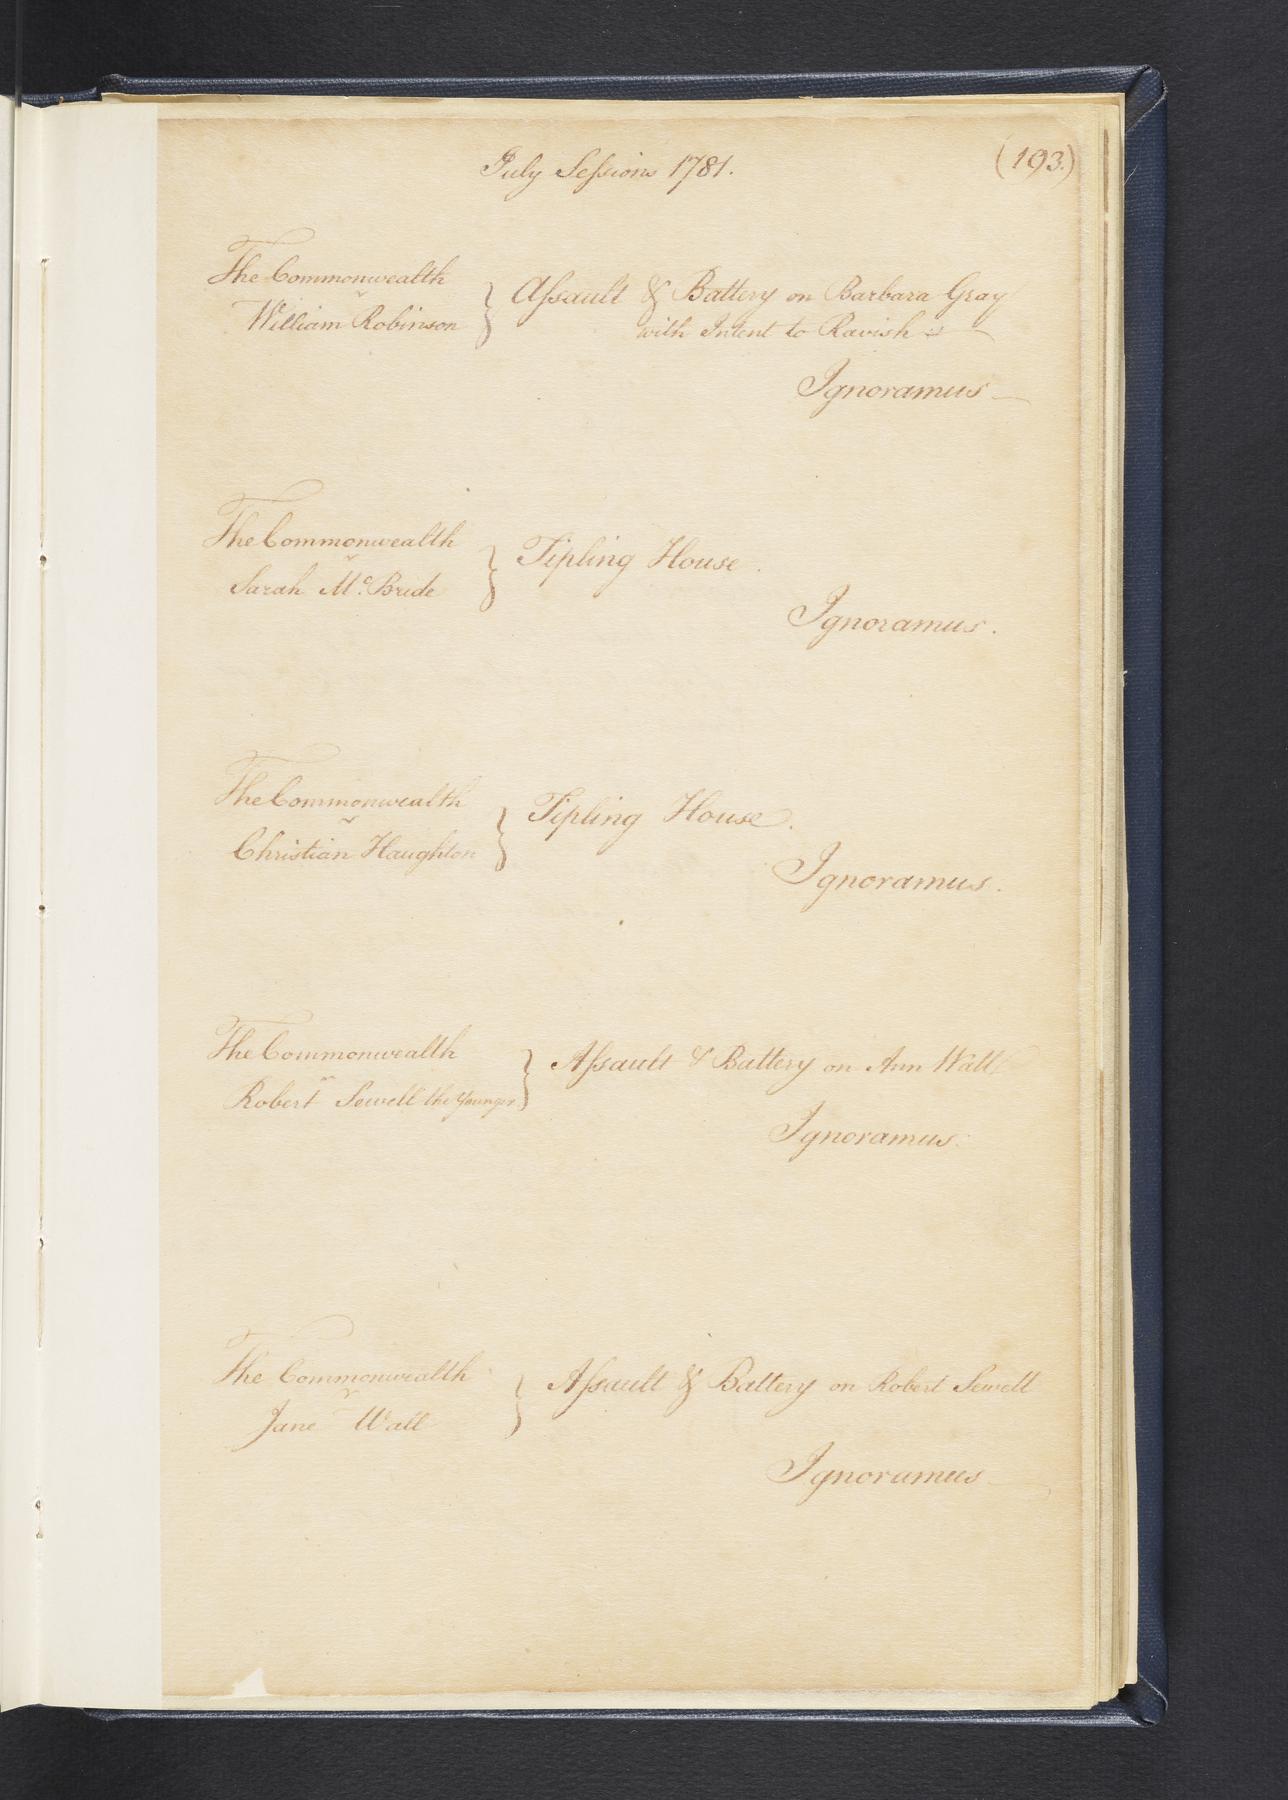 July Sessions 1781.
(193.)
The Commonwealth
v
William Robinson
} Assault & Battery on Barbara Gray
with Intent to Ravish
Ignoramus
The Commonwealth
v
Sarah Mc. Bride
} Tipling House.
Ignoramus.
The Commonwealth
v
Christian Haughton
} Tipling House.
Ignoramus.
The Commonwealth
v
Robert Sewell the Younger
} Assault & Battery on Ann Wall
Ignoramus.
The Commonwealth
v
Jane Wall
} Assault & Battery on Robert Sewell
Ignoramus